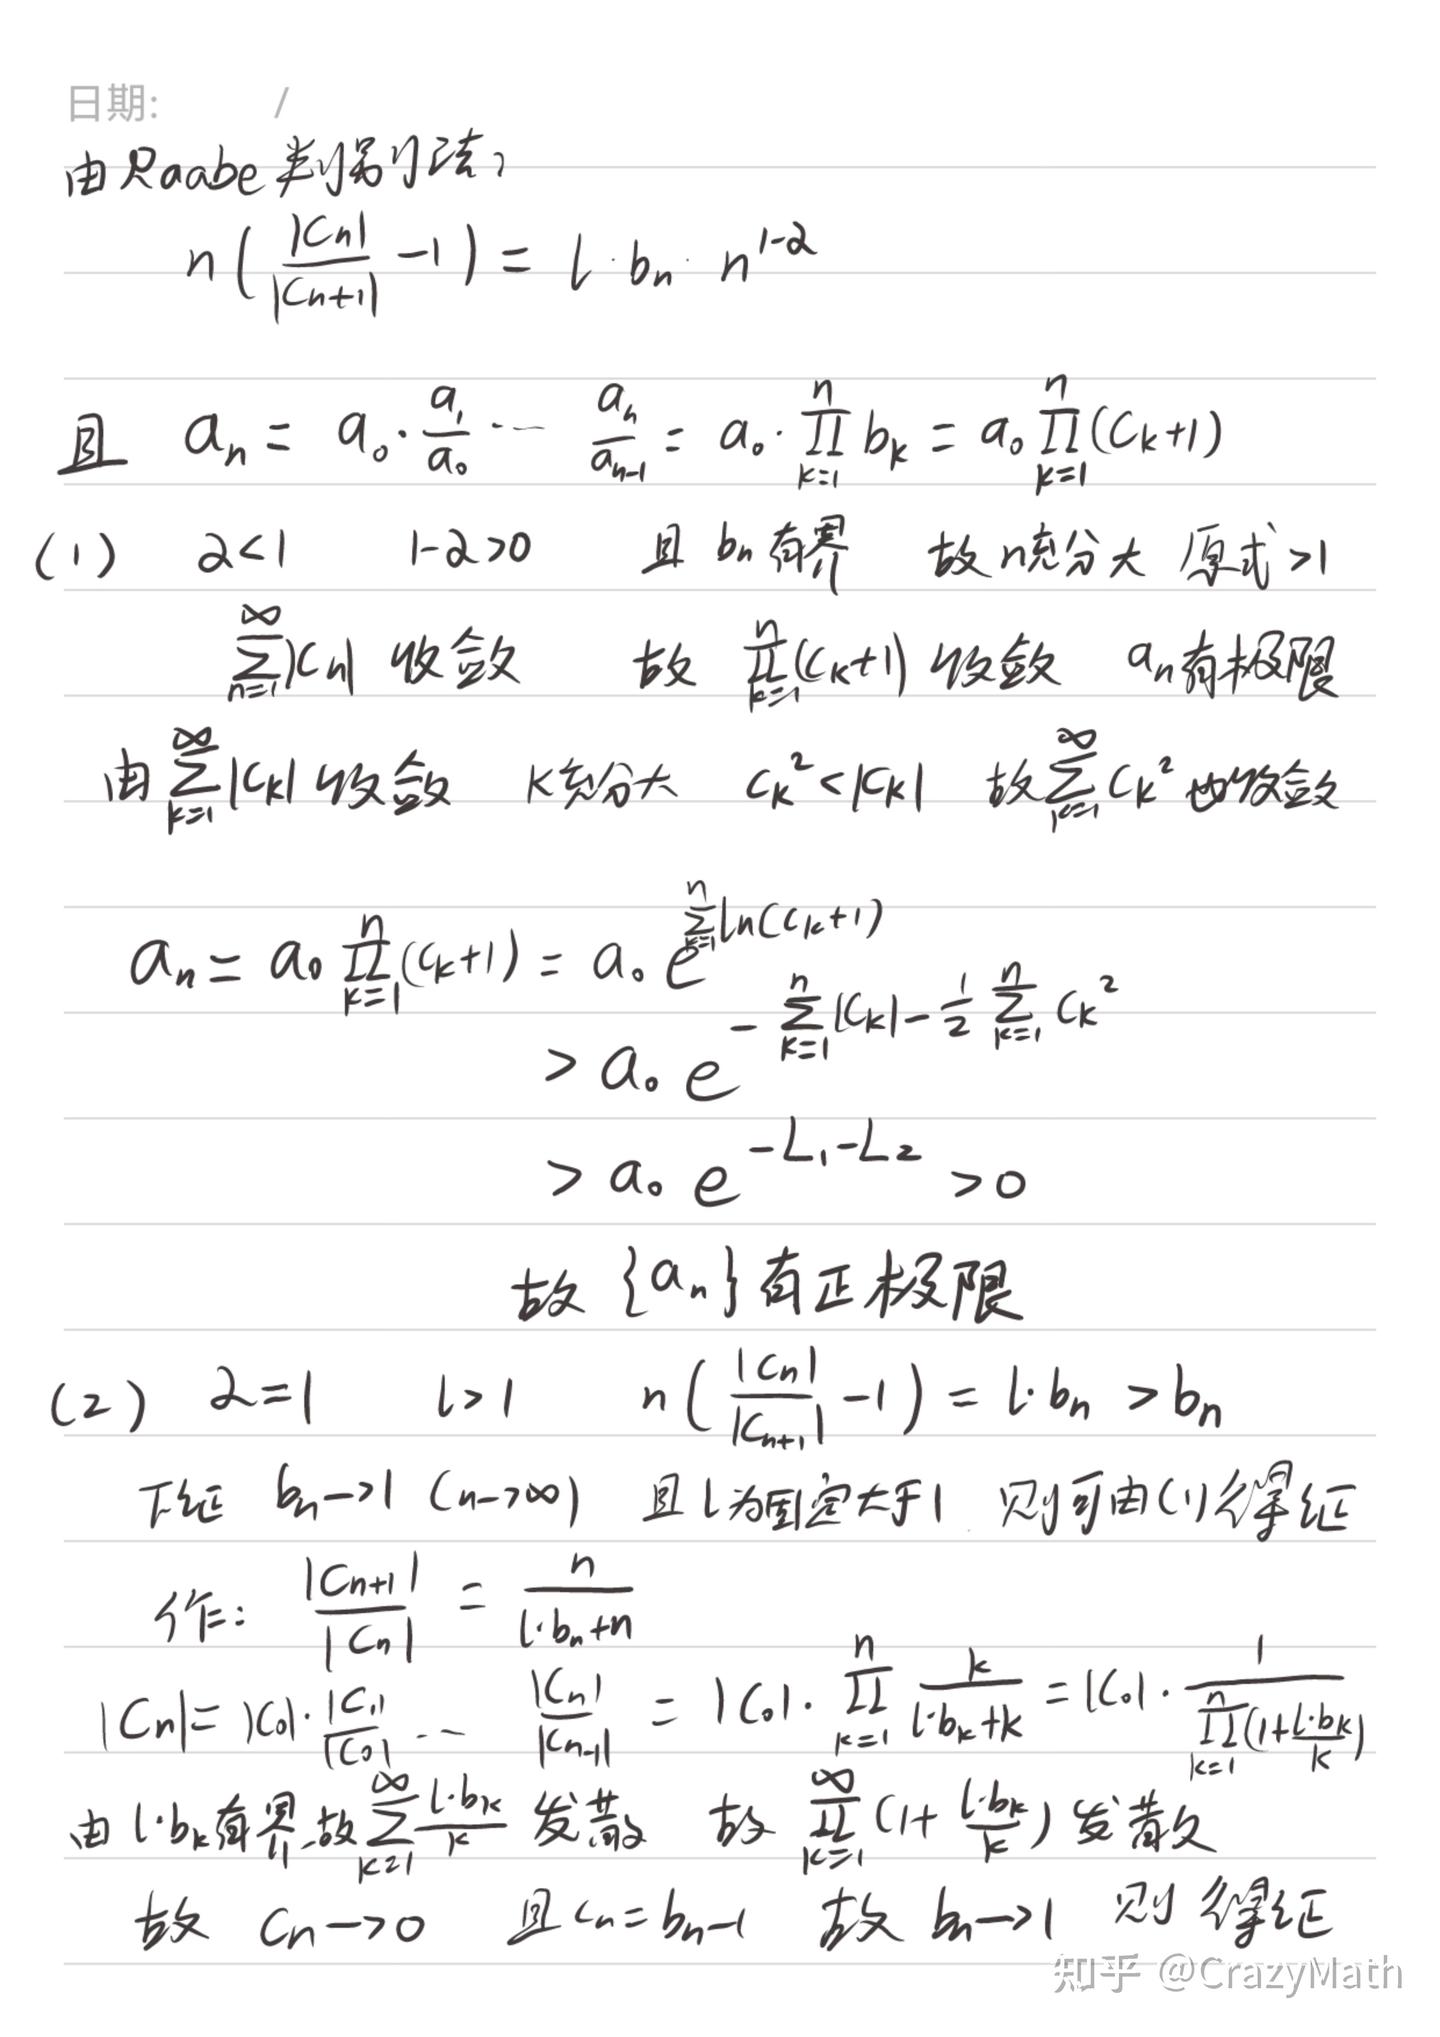 日期: /
由Raabe判别法,
n(|Cn|/|Cn+1| -1) = l·bn·n^{1-2}
且 an = a0·a1/a0 ··· an/an-1 = a0·∏_{k=1}^{n} bk = a0 ∏_{k=1}^{n}(Ck+1)
(1) 2<1 1-2>0 且 bn有界 故n充分大 原式>1
∑_{n=1}^{∞}|Cn| 收敛 故 ∏_{k=1}^{n}(Ck+1) 收敛 an有极限
由∑_{k=1}^{∞}|Ck| 收敛 k充分大 Ck²<|Ck| 故∑_{k=1}^{∞}Ck²也收敛
an = a0 ∏_{k=1}^{n}(Ck+1) = a0 e^{∑_{k=1}^{n}ln(Ck+1)}
> a0 e^{-∑_{k=1}^{n}|Ck| - 1/2 ∑_{k=1}^{n} Ck²}
> a0 e^{-L1-L2} >0
故 {an}有正极限
(2) 2=1 l>1 n(|Cn|/|Cn+1| -1) = l·bn > bn
下证 bn→1 (n→∞) 且l为固定大于1 则可由(1)得证
作: |Cn+1|/|Cn| = n/(l·bn+n)
|Cn| = |C0|·|C1|/|C0| ··· |Cn|/|Cn-1| = |C0|·∏_{k=1}^{n} k/(l·bk+k) = |C0|·1/∏_{k=1}^{n}(1+l·bk/k)
由l·bk有界,故∑_{k=1}^{∞} l·bk/k 发散 故 ∏_{k=1}^{∞}(1+l·bk/k)发散
故 Cn→0 且Cn=bn-1 故 bn→1 则得证
知乎 @CrazyMath